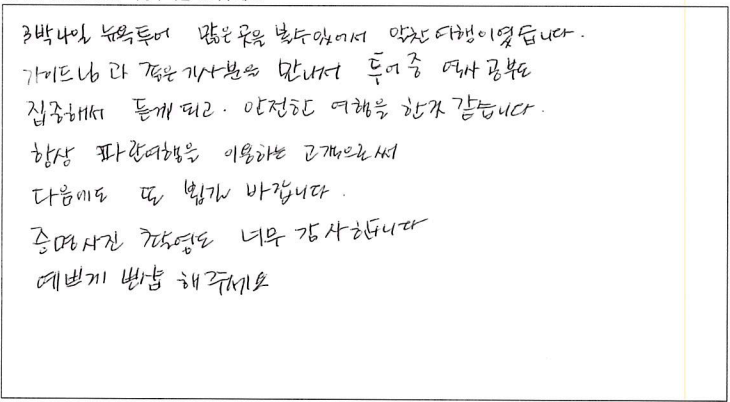 3박4일 뉴욕투어 많은곳을 볼수있어서 알찬 여행이였습니다.
가이드님과 좋은 기사분을 만나서 투어중 역사공부도
집중해서 듣게 되고. 안전한 여행을 한것 같습니다.
항상 파란여행을 이용하는 고객으로써
다음에도 또 뵙길 바랍니다.
증명사진 촬영도 너무 감사합니다
예쁘게 뽀샵 해주세요